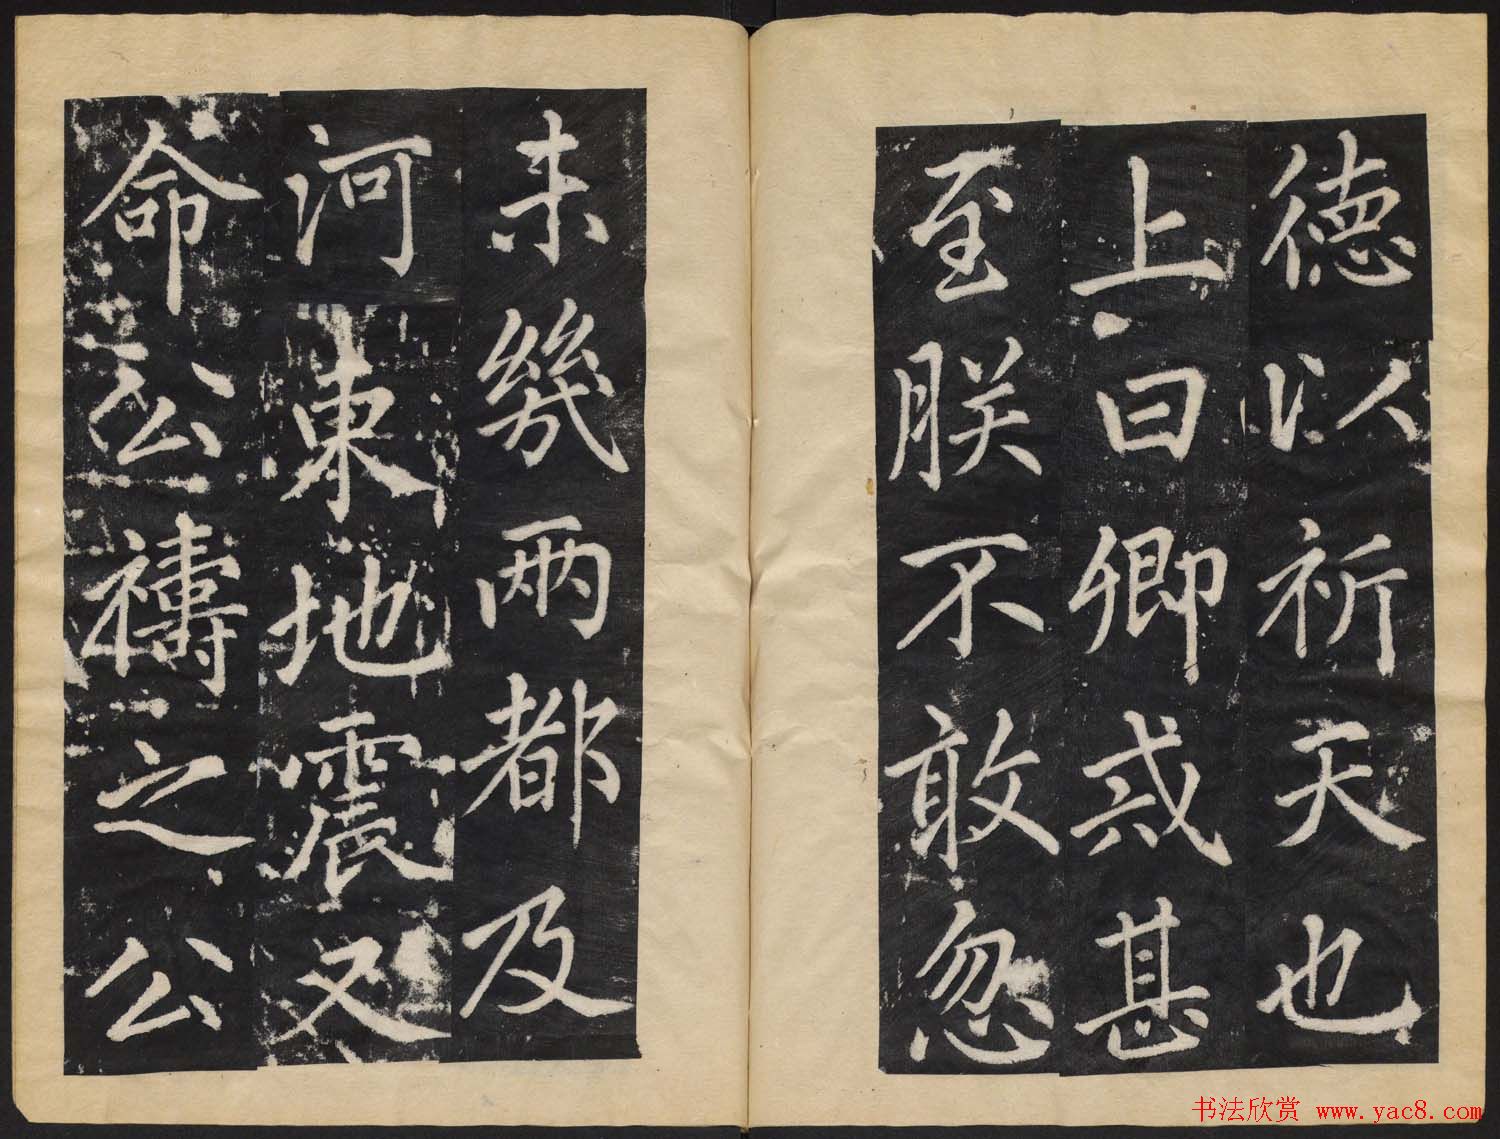 德以祈天也
上曰卿忒甚
至朕不敢忽
未幾兩都及
河東地震又
命公禱之公
书法欣赏 www.yac8.com